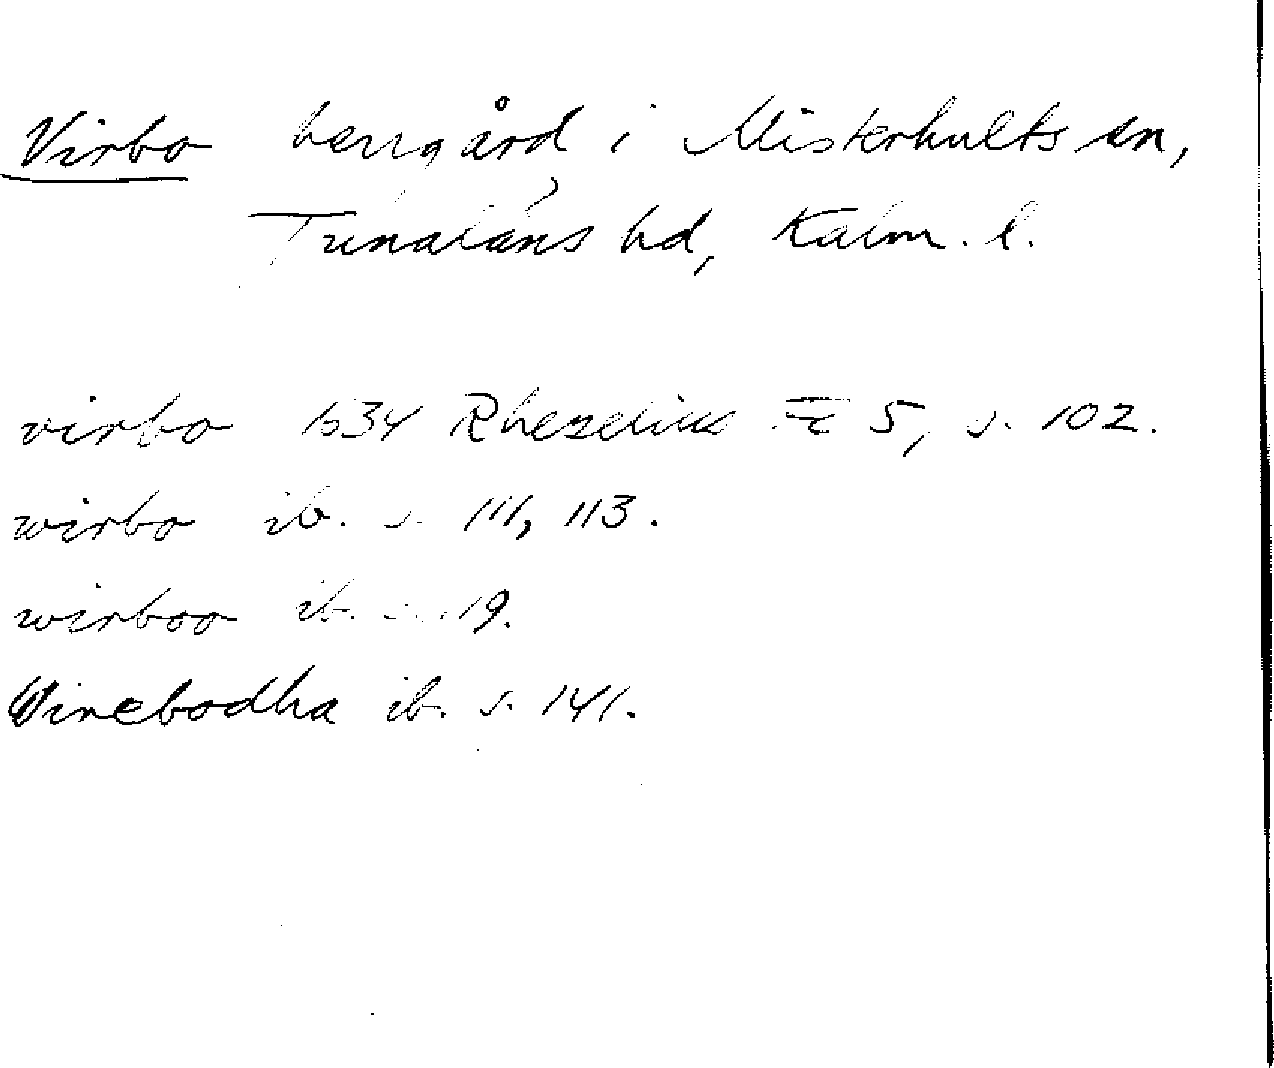 Virbo herrgård i Misterhults sn,
Tunaläns hd, Kalm. l.
virbo 1634 Rhezelius F c 5, s. 102.
wirbo ib. s. 111, 113.
wirboo ib. 19.
Wirebodha ib. s. 141.